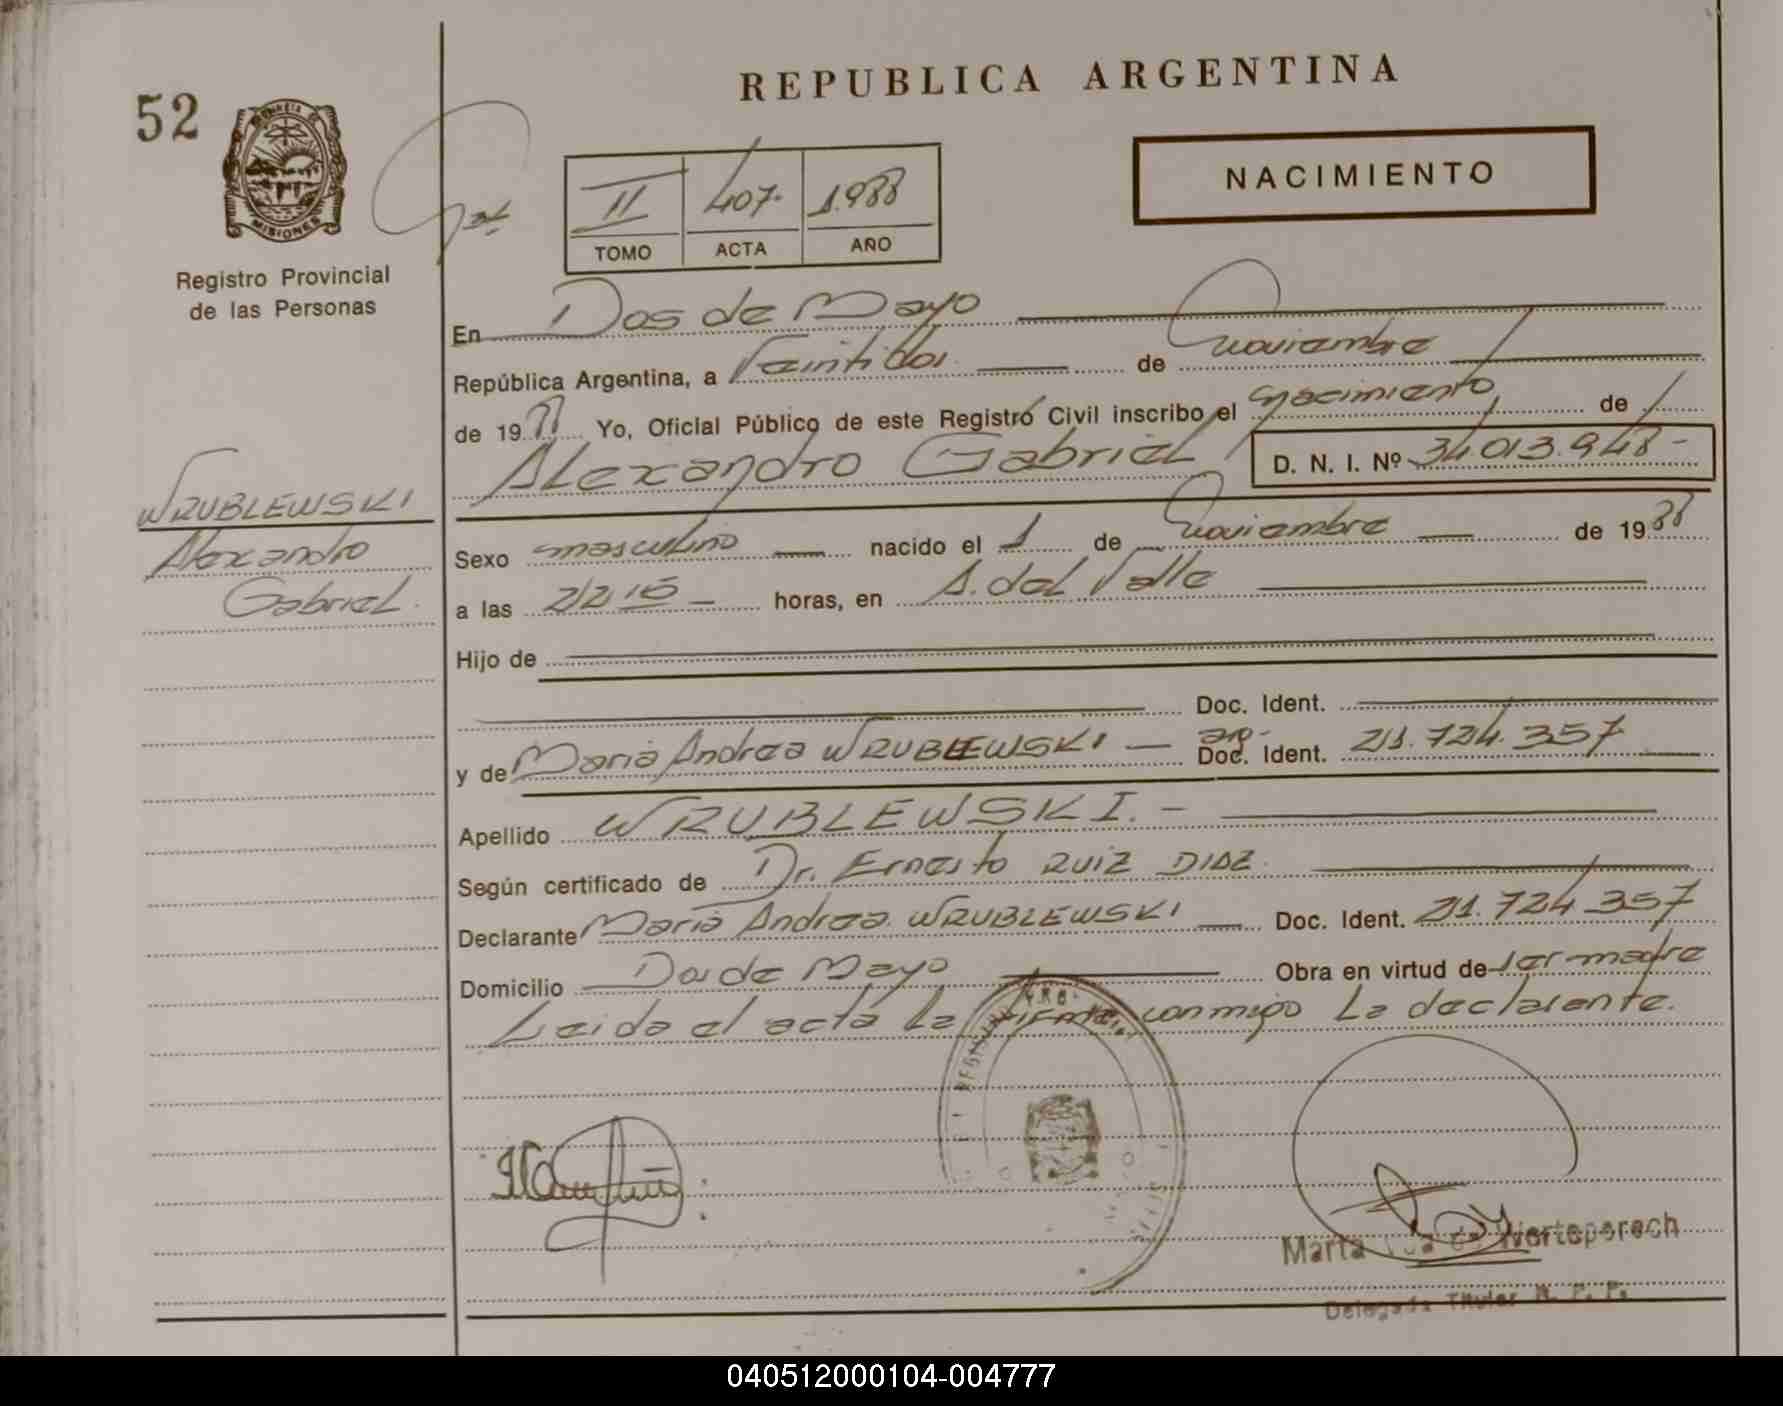 REPUBLICA ARGENTINA
52
NACIMIENTO
II 407. 1.988
TOMO ACTA AÑO
MISIONES
Registro Provincial
de las Personas
En Dos de Mayo
República Argentina, a Veintidos de noviembre
de 1988 Yo, Oficial Público de este Registro Civil inscribo el nacimiento de
Alexandro Gabriel D. N. I. Nº 34.013.948-
WRUBLEWSKI
Alexandro
Gabriel.
Sexo masculino nacido el 1 de noviembre de 1988
a las 22,15 horas, en A. del Valle
Hijo de
Doc. Ident.
y de Maria Andrea WRUBLEWSKI Doc. Ident. 21.724.357
Apellido WRUBLEWSKI.-
Según certificado de Dr. Ernesto RUIZ DIAZ
Declarante Maria Andrea WRUBLEWSKI Doc. Ident. 21.724.357
Domicilio Dos de Mayo Obra en virtud de ser madre
Leida el acta la firma conmigo la declarante.
Marta de Werteperech
Delegada Titular R. P. P.
040512000104-004777